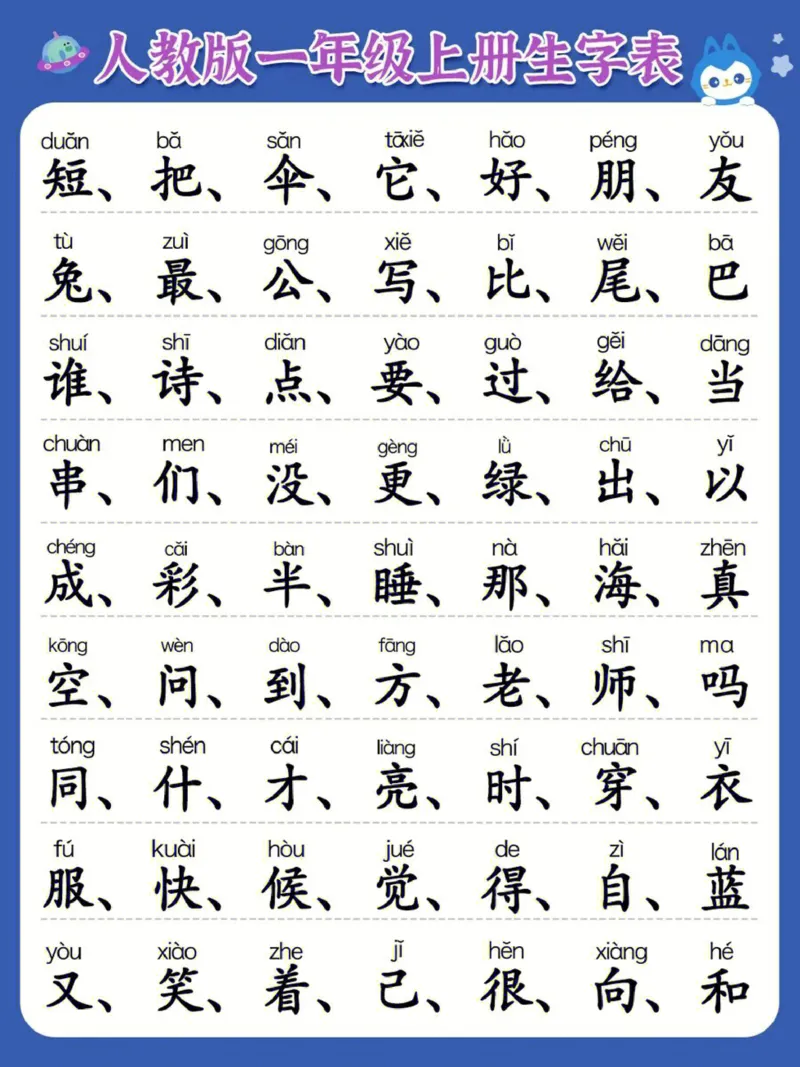 人教版一年级上册生字表
duǎn bǎ sǎn tāxiě hǎo péng yǒu
短、把、伞、它、好、朋、友
tù zuì gōng xiě bǐ wěi bā
兔、最、公、写、比、尾、巴
shuí shī diǎn yào guò gěi dāng
谁、诗、点、要、过、给、当
chuàn men méi gèng lǜ chū yǐ
串、们、没、更、绿、出、以
chéng cǎi bàn shuì nà hǎi zhēn
成、彩、半、睡、那、海、真
kōng wèn dào fāng lǎo shī ma
空、问、到、方、老、师、吗
tóng shén cái liàng shí chuān yī
同、什、才、亮、时、穿、衣
fú kuài hòu jué de zì lán
服、快、候、觉、得、自、蓝
yòu xiào zhe jǐ hěn xiàng hé
又、笑、着、己、很、向、和